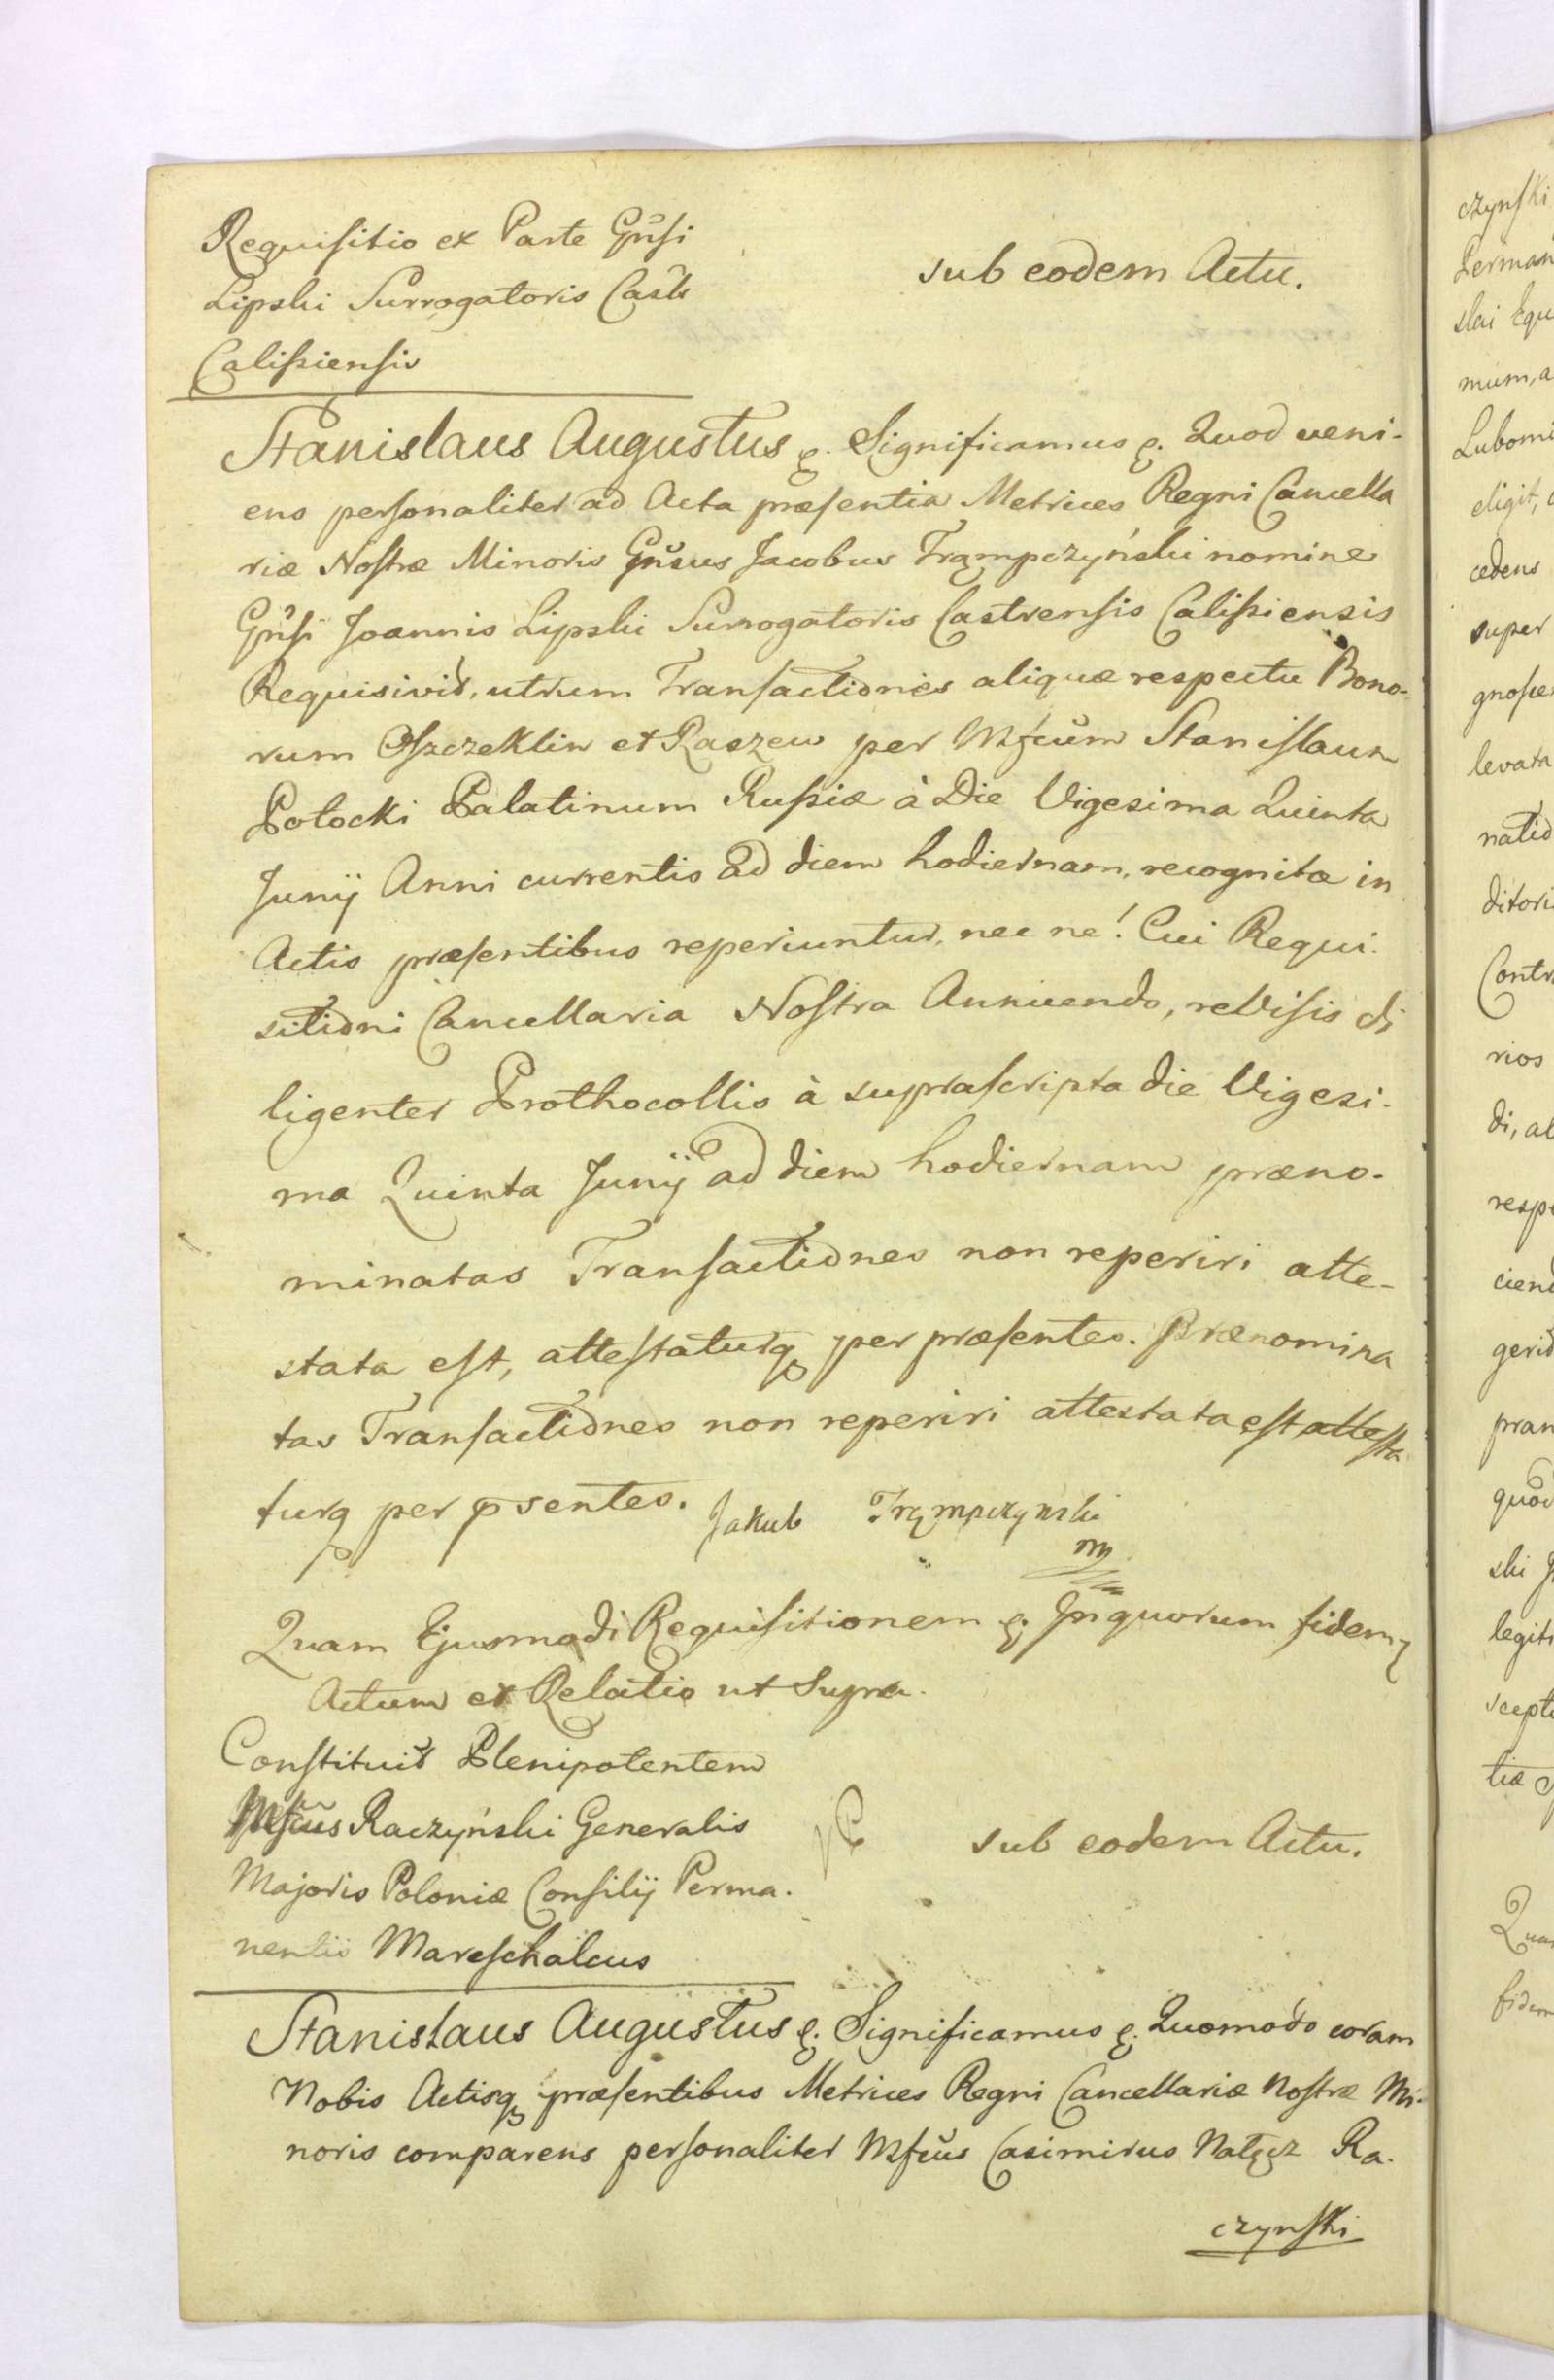 Requisitio ex Parte Gnŝi
Lipski Surrogatoris Casîs
Calissiensis
sub eodem Actu.
Stanislaus Augustus &. Significamus &. Quod veni-
ens personaliter ad Acta præsentia Metrices Regni Cancella
riæ Nostræ Minoris Gnŝus Jacobus Trąmpczyński nomine
Gnŝi Joannis Lipski Surrogatoris Castrensis Calissiensis
Requisivit, utrum Transactiones aliquæ respectu Bono-
rum Oszczeklin et Raszew per Mfcŭm Stanislaum
Potocki Palatinum Russiæ à Die Vigesima Quinta
Junij Anni currentis ad diem hodiernam, recognitæ in
Actis præsentibus reperiuntur, nec ne! Cui Requi-
sitioni Cancellaria Nostra Annuendo, reVisis di
ligenter Prothocollis à suprascripta die Vigesi-
ma Quinta Junij ad diem hodiernam præno-
minatas Transactiones non reperiri atte-
stata est, attestaturq per præsentes. Prænomina
tas Transactiones non reperiri attestata est attesta
turq per psentes. Jakub Trąmpczyński
mp
Quam Ejusmodi Requisitionem &. In quorum fidem &
Actum et Relatio ut Supra.
Constituit Plenipotentem
Mfcŭs Raczyński Generalis
Majoris Poloniæ Consilij Perma-
nentis Mareschalcus
sub eodem Actu.
Stanislaus Augustus &. Significamus &. Quomodo coram
Nobis Actisq præsentibus Metrices Regni Cancellariæ Nostræ Mi-
noris comparens personaliter Mfcŭs Casimirus Natęcz Ra-
czynski
czynski
Perman
slai Equ
mum, a
Lubomi
eligit,
cedens
super
gnosce
levata
natio
ditori
Contr
rios
di, al
resp
ciend
gerid
pran
quod
ski
legit
scept
tiæ
Qua
fidem